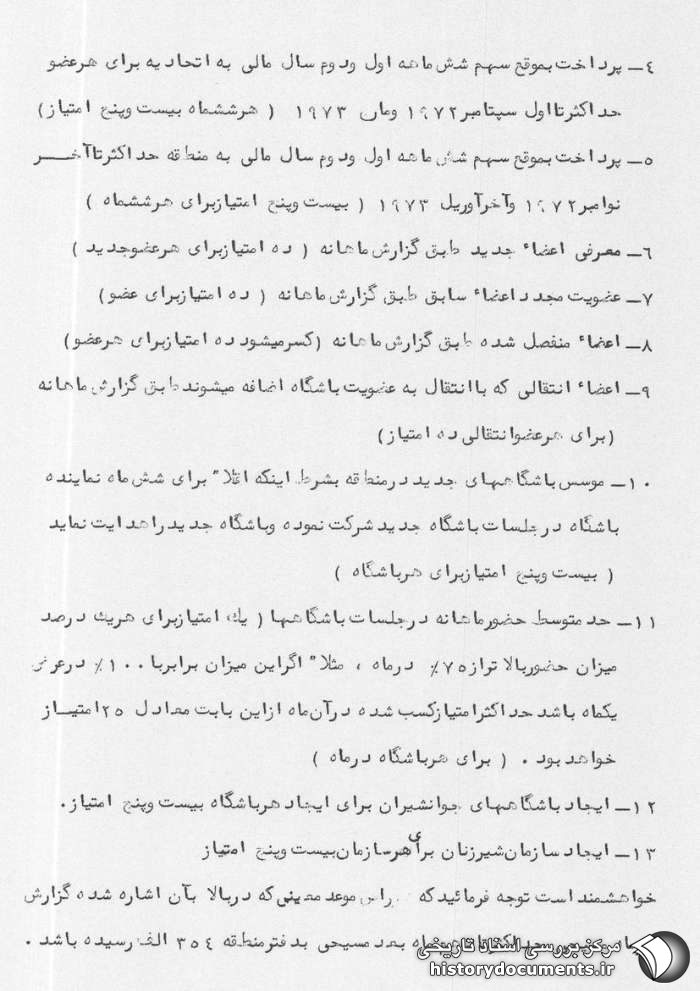 ۴ــ پرداخت بموقع سهم شش ماهه اول ودوم سال مالی به اتحادیه برای هرعضو
حداکثرتااول سپتامبر ۱۹۷۲ ومارس ۱۹۷۳ ( هرششماه بیست وپنج امتیاز)
۵ــ پرداخت بموقع سهم شش ماهه اول ودوم سال مالی به منطقه حداکثرتاآخــر
نوامبر ۱۹۷۲ وآخرآوریل ۱۹۷۳ ( بیست وپنج امتیازبرای هرششماه )
۶ــ معرفی اعضاء جدید طبق گزارش ماهانه ( ده امتیازبرای هرعضوجدید )
۷ــ عضویت مجدد اعضاء سابق طبق گزارش ماهانه ( ده امتیازبرای عضو)
۸ــ اعضاء منفصل شده طبق گزارش ماهانه (کسرمیشود ده امتیازبرای هرعضو)
۹ــ اعضاء انتقالی که باانتقال به عضویت باشگاه اضافه میشوند طبق گزارش ماهانه
(برای هرعضوانتقالی ده امتیاز)
۱۰ــ موسس باشگاههای جدید درمنطقه بشرط اینکه اقلا" برای شش ماه نماینده
باشگاه درجلسات باشگاه جدید شرکت نموده وباشگاه جدید راهدایت نماید
( بیست وپنج امتیازبرای هرباشگاه )
۱۱ــ حد متوسط حضورماهانه درجلسات باشگاهها ( یك امتیازبرای هریك درصد
میزان حضوربالا تراز ۷۵٪ درماه ، مثلا" اگراین میزان برابربا ۱۰۰٪ درعرض
یکماه باشد حداکثرامتیازکسب شده درآن ماه ازاین بابت معادل ۲۵ امتیــاز
خواهد بود . ( برای هرباشگاه درماه )
۱۲ــ ایجاد باشگاههای جوانشیران برای ایجاد هرباشگاه بیست وپنج امتیاز.
۱۳ــ ایجاد سازمان شیرزنان برای هرسازمان بیست وپنج امتیاز
خواهشمند است توجه فرمائید که موعد معینی که دربالا بآن اشاره شده گزارش
بعد مسیحی بدفترمنطقه ۳۵۴ الف رسیده باشد .
مرکز بررسی اسناد تاریخی
historydocuments.ir